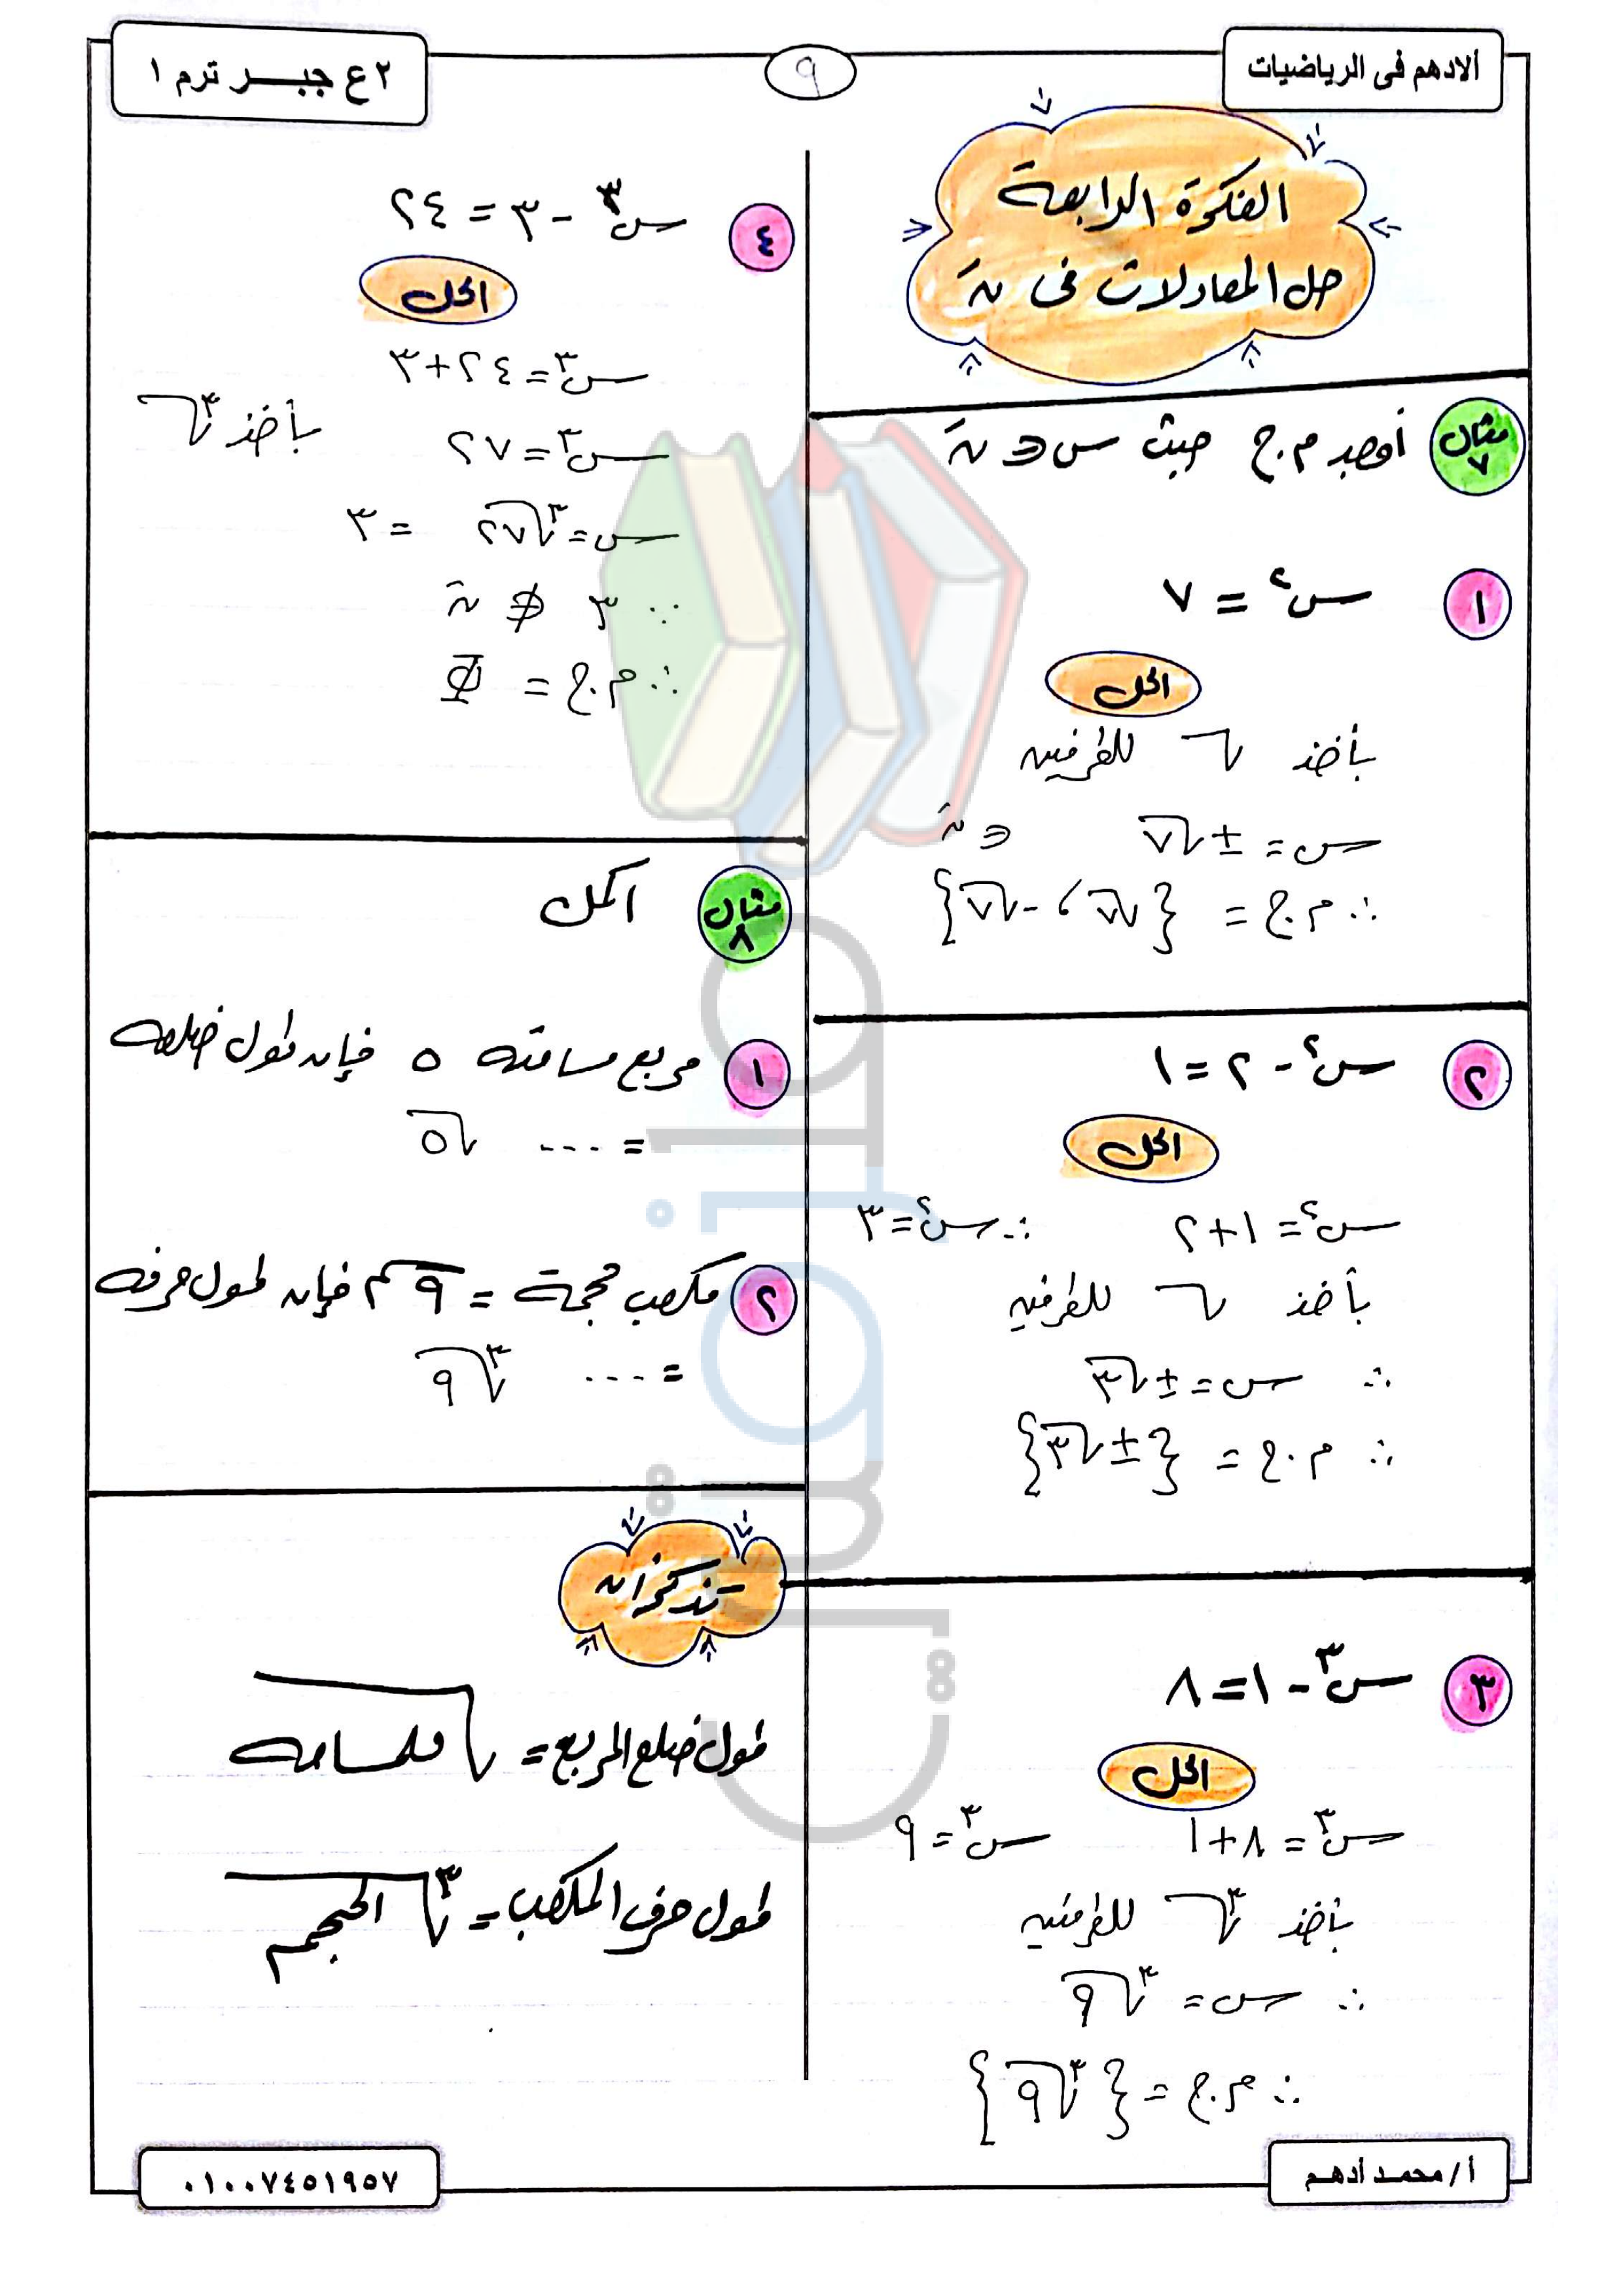 الادهم فى الرياضيات
٩
٢ ع جبر ترم ١
الفكرة الرابعة
حل المعادلات فى ن َ
مثال ٧ أوجد م.ح حيث س ∋ ن َ
١ س٢ = ٧
الحل
بأخذ √ للطرفين
س = ± √٧ ∋ ن َ
∴ م.ح = {√٧ ، -√٧}
٢ س٢ - ٢ = ١
الحل
س٢ = ١ + ٢ ∴ س٢ = ٣
بأخذ √ للطرفين
∴ س = ± √٣
∴ م.ح = {± √٣}
٣ س٣ - ١ = ٨
الحل
س٣ = ٨ + ١ س٣ = ٩
بأخذ ٣√ للطرفين
∴ س = ٣√٩
∴ م.ح = {٣√٩}
٤ س٣ - ٣ = ٢٤
الحل
س٣ = ٢٤ + ٣
س٣ = ٢٧ بأخذ ٣√
س = ٣√٢٧ = ٣
∵ ٣ ∌ ن َ
∴ م.ح = Φ
مثال ٨ اكمل
١ مربع مساحته ٥ فإن طول ضلعه
= ... √٥
٢ مكعب حجمة = ٩ سم٣ فإن طول حرفه
= ... ٣√٩
تذكر أن
طول ضلع المربع = √المساحه
طول حرف المكعب = ٣√الحجم
أ/ محمد أدهم
٠١٠٠٧٤٥١٩٥٧